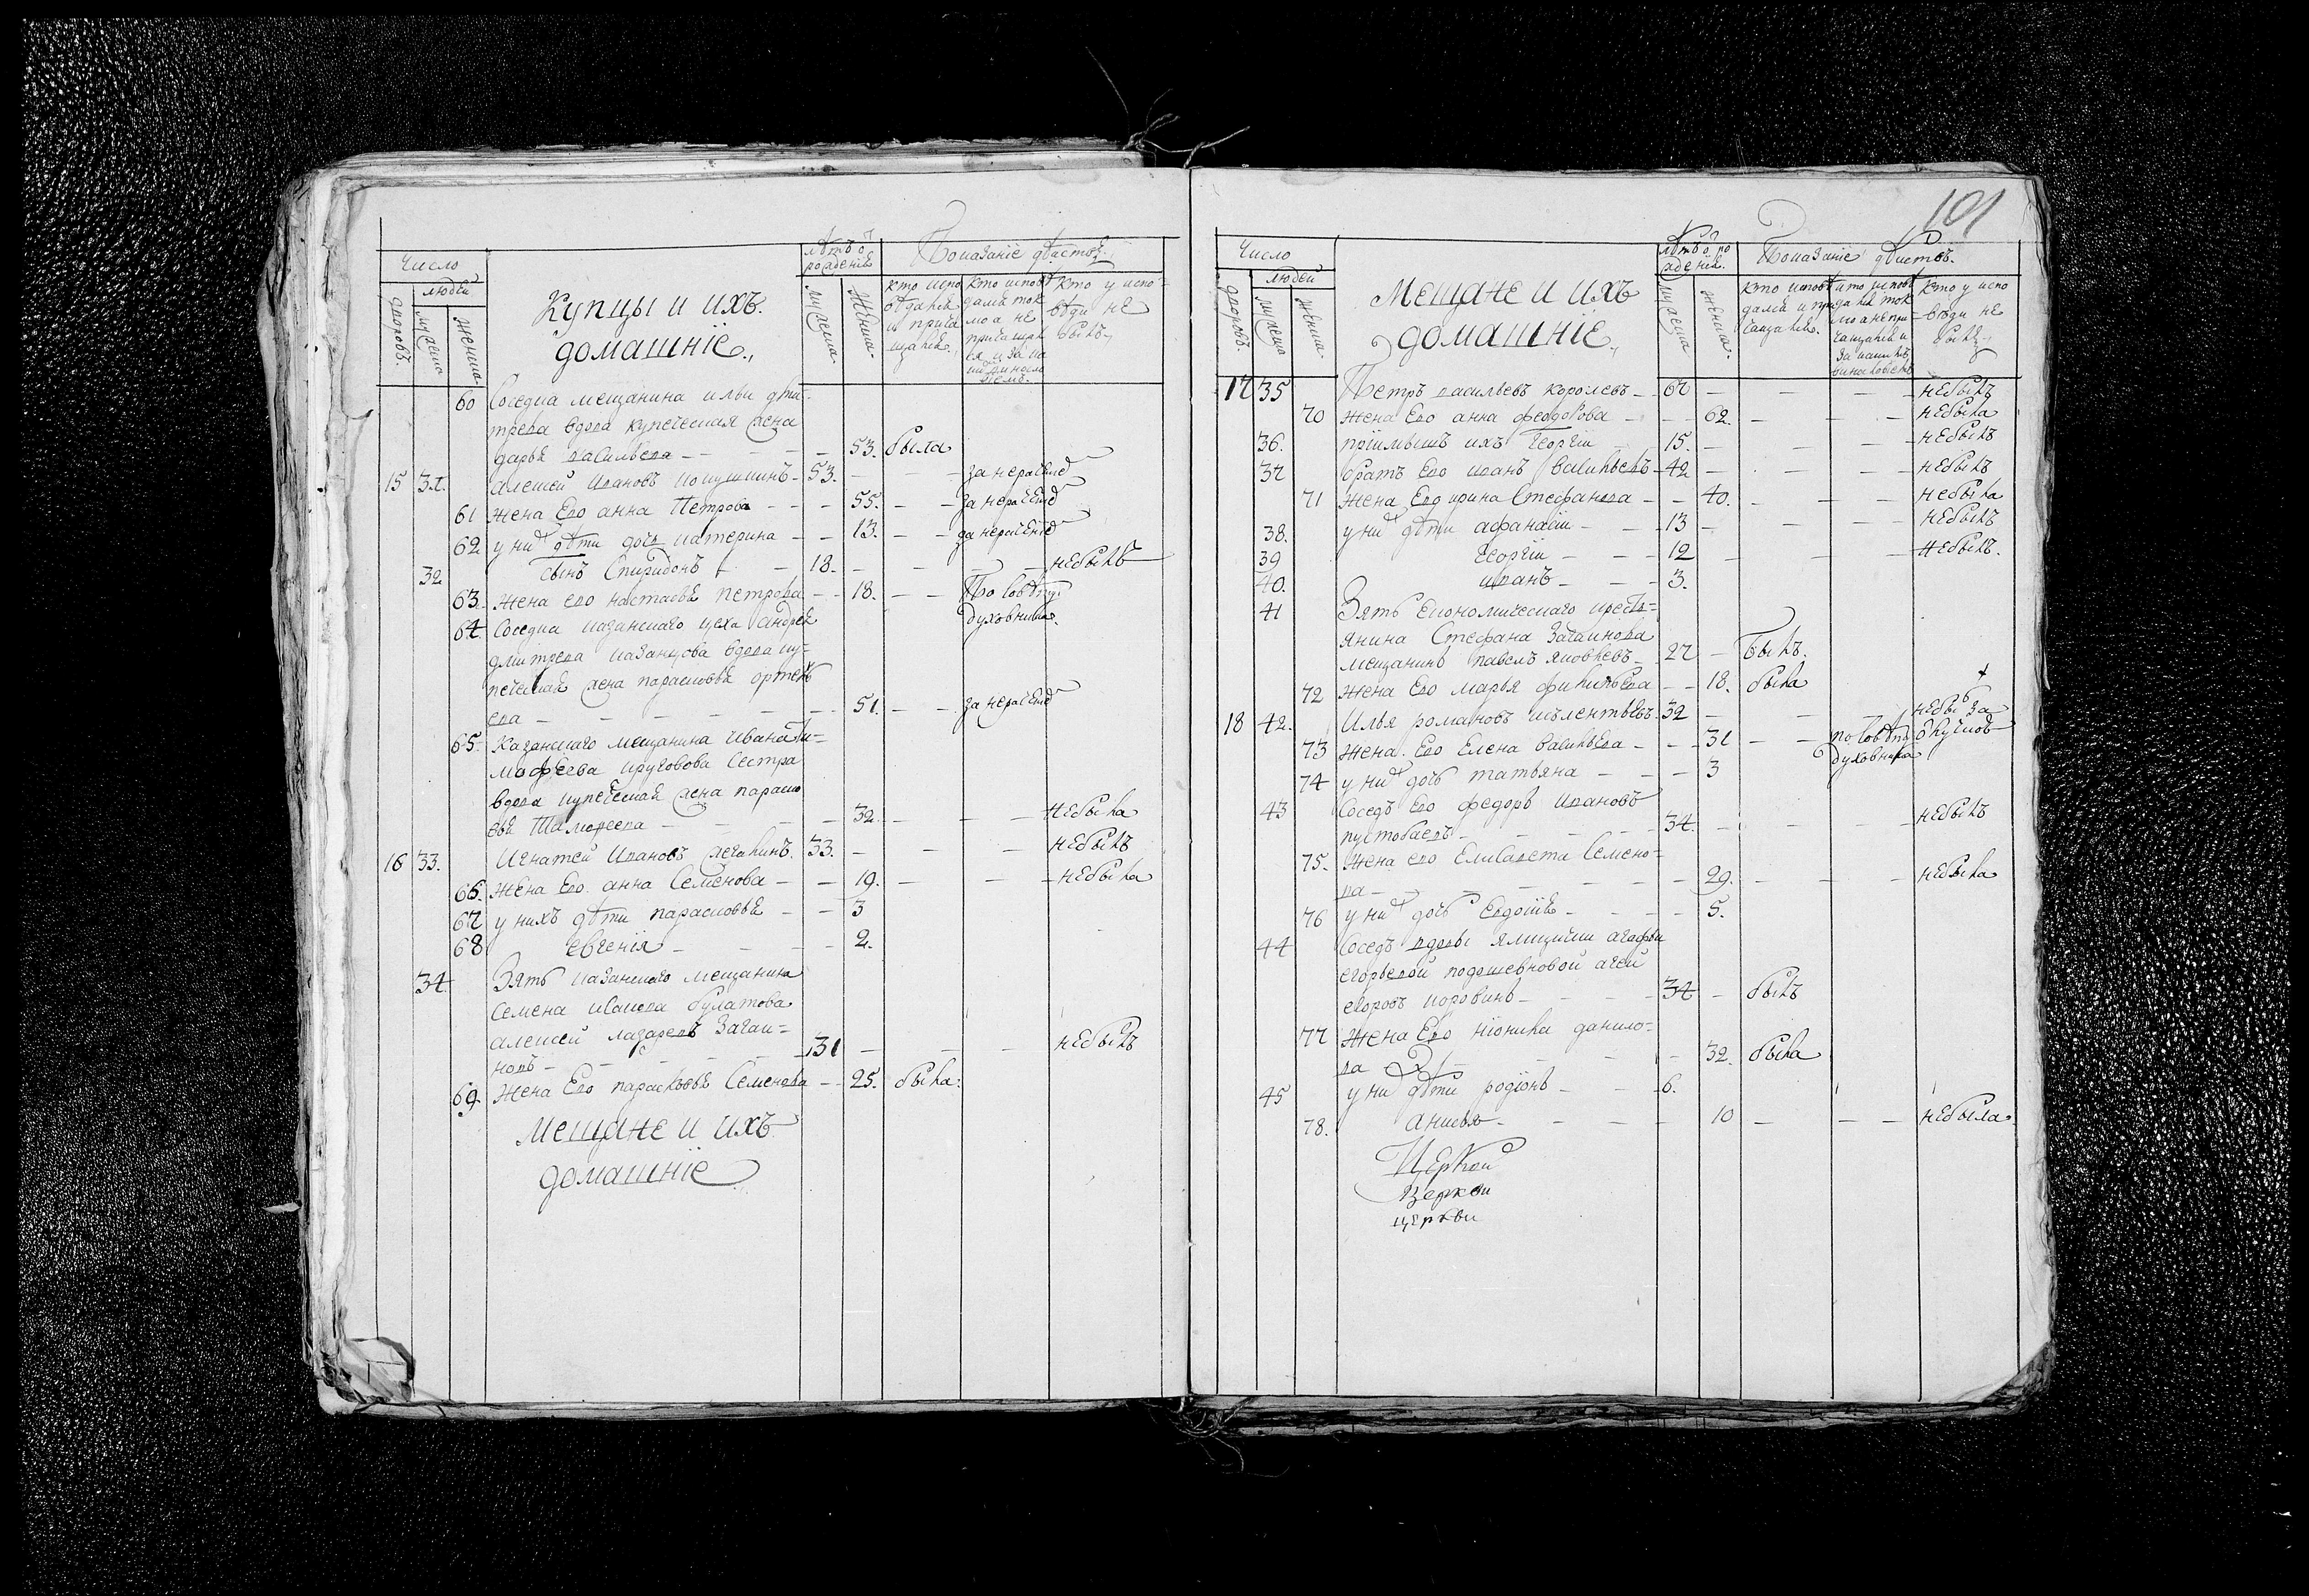 Число
людей
дворовъ.
мужеска
женска
Купцы и ихъ.
домашніе.,
лѣтъ о
рожденія
мужеска.
женска.
Показаніе дѣйствъ.
кто испо
вѣдался
и прича
щался.
кто исповѣ
дался ток
мо а не
причащал
ся
кто у испо-
вѣди не
былъ.
60 Соседка мещанина ильи дми-
трева вдова купеческая жена
дарья васильева — 53. была
15 31. алексей Ивановъ 53. — за нерачениѣ
61 жена Ево анна Петрова — 55. — за нерачениѣ
62 у них дѣти дочь катерина — 13. — за нерачениѣ
32 сынъ Спиридонъ — 18. — небылъ
63. жена ево настасья петрова — 18. — По совѣту
духовника.
64 Соседка казанскаго цеха андрея
дмитрева казанцова вдова ку-
печеская жена парасковья ортемь
ева — 51. — за нерачениѣ
65. Казанскаго мещанина Ивана Ти-
мофеева круговова Сестра
вдова купеческая жена параско
вья Тимофеева — 32. — небыла
16 33. Игнатей Ивановъ жегалинъ. 33. — небылъ
66. жена Ево. анна Семенова — 19. — небыла
67 у нихъ дѣти парасковья — 3
68 евгенія — 2.
34. Зять казанскаго мещанина
Семена иванова булатова
алексей лазаревъ Загаи-
новъ — 31 — небылъ
69. жена Ево парасковья Семенова — 25. была.
Мещане и ихъ
домашніе
101
Число
людей
дворовъ.
мужеска
женска.
Мещане и ихъ
домашніе.,
лѣтъ о ро
жденія.
мужеска
женска.
Показаніе дѣйствъ.
кто исповѣ
дался и при
чащался.
кто исповѣ
дался ток
мо а не при
чащался и
за каким
винословіемъ
кто у испо
вѣди не
былъ.
17 35 Петръ васильевъ королевъ — 67 — небылъ
70 жена Ево анна феодорова — 62. — небыла
36. пріимышъ ихъ Георгіи — 15. — небылъ
37 братъ Ево иванъ васильевъ — 42 — небылъ
71 жена Ево ирина Стефанова — 40. — небыла
38. у них дѣти афанасіи — 13 — небылъ
39 Георгіи — 12 — небылъ.
40. иванъ — 3.
41 Зять Економическаго кресть=
янина Стефана Загаинова
мещанинъ павелъ яковлевъ — 27 — былъ.
72 жена Ево марья филипьева — 18. была
18 42. Илья романовъ 32 — небы за
73 жена. Ево Елена васильева — 31 — по совѣту отлучкою
духовника
74 у них дочь татьяна — 3
43 Соседъ Ево федоръ Ивановъ
пустобаевъ — 34. — небылъ
75. жена ево Елисавета Семено=
ва — 29. — небыла
76 у них дочь Евдокія — 5.
44 Соседъ вдовы ямщички агафьи
егорьевой подошевновой агей
егоровъ коровинъ — 34 — былъ
77 жена Ево нионила данило=
ва — 32. была
45 у них дѣти родіонъ — 6.
78. анисья — 10 — небыла
Церкои
Церкви
церкви